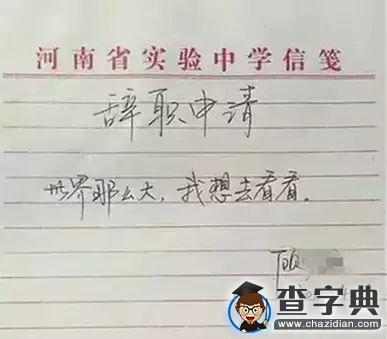 河南省实验中学信笺
辞职申请
世界那么大，我想去看看。
顾
查字典
www.chazidian.com